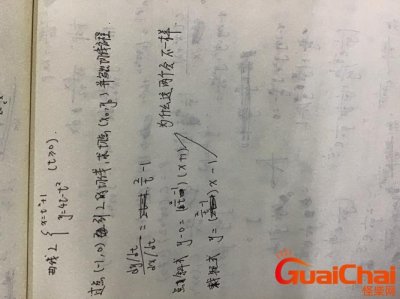 曲线L { x=t²+1
y=4t-t² (t≥0).
过点(-1,0)引L的切线,求切点(x₀,y₀)并写出切线方程
dy/dt / dx/dt = 2/t - 1
点斜式 y-0=(2/t-1)(x+1)
斜截式 y=(2/t-1)x-1
为什么这两个会不一样
GuaiChai
怪柴网